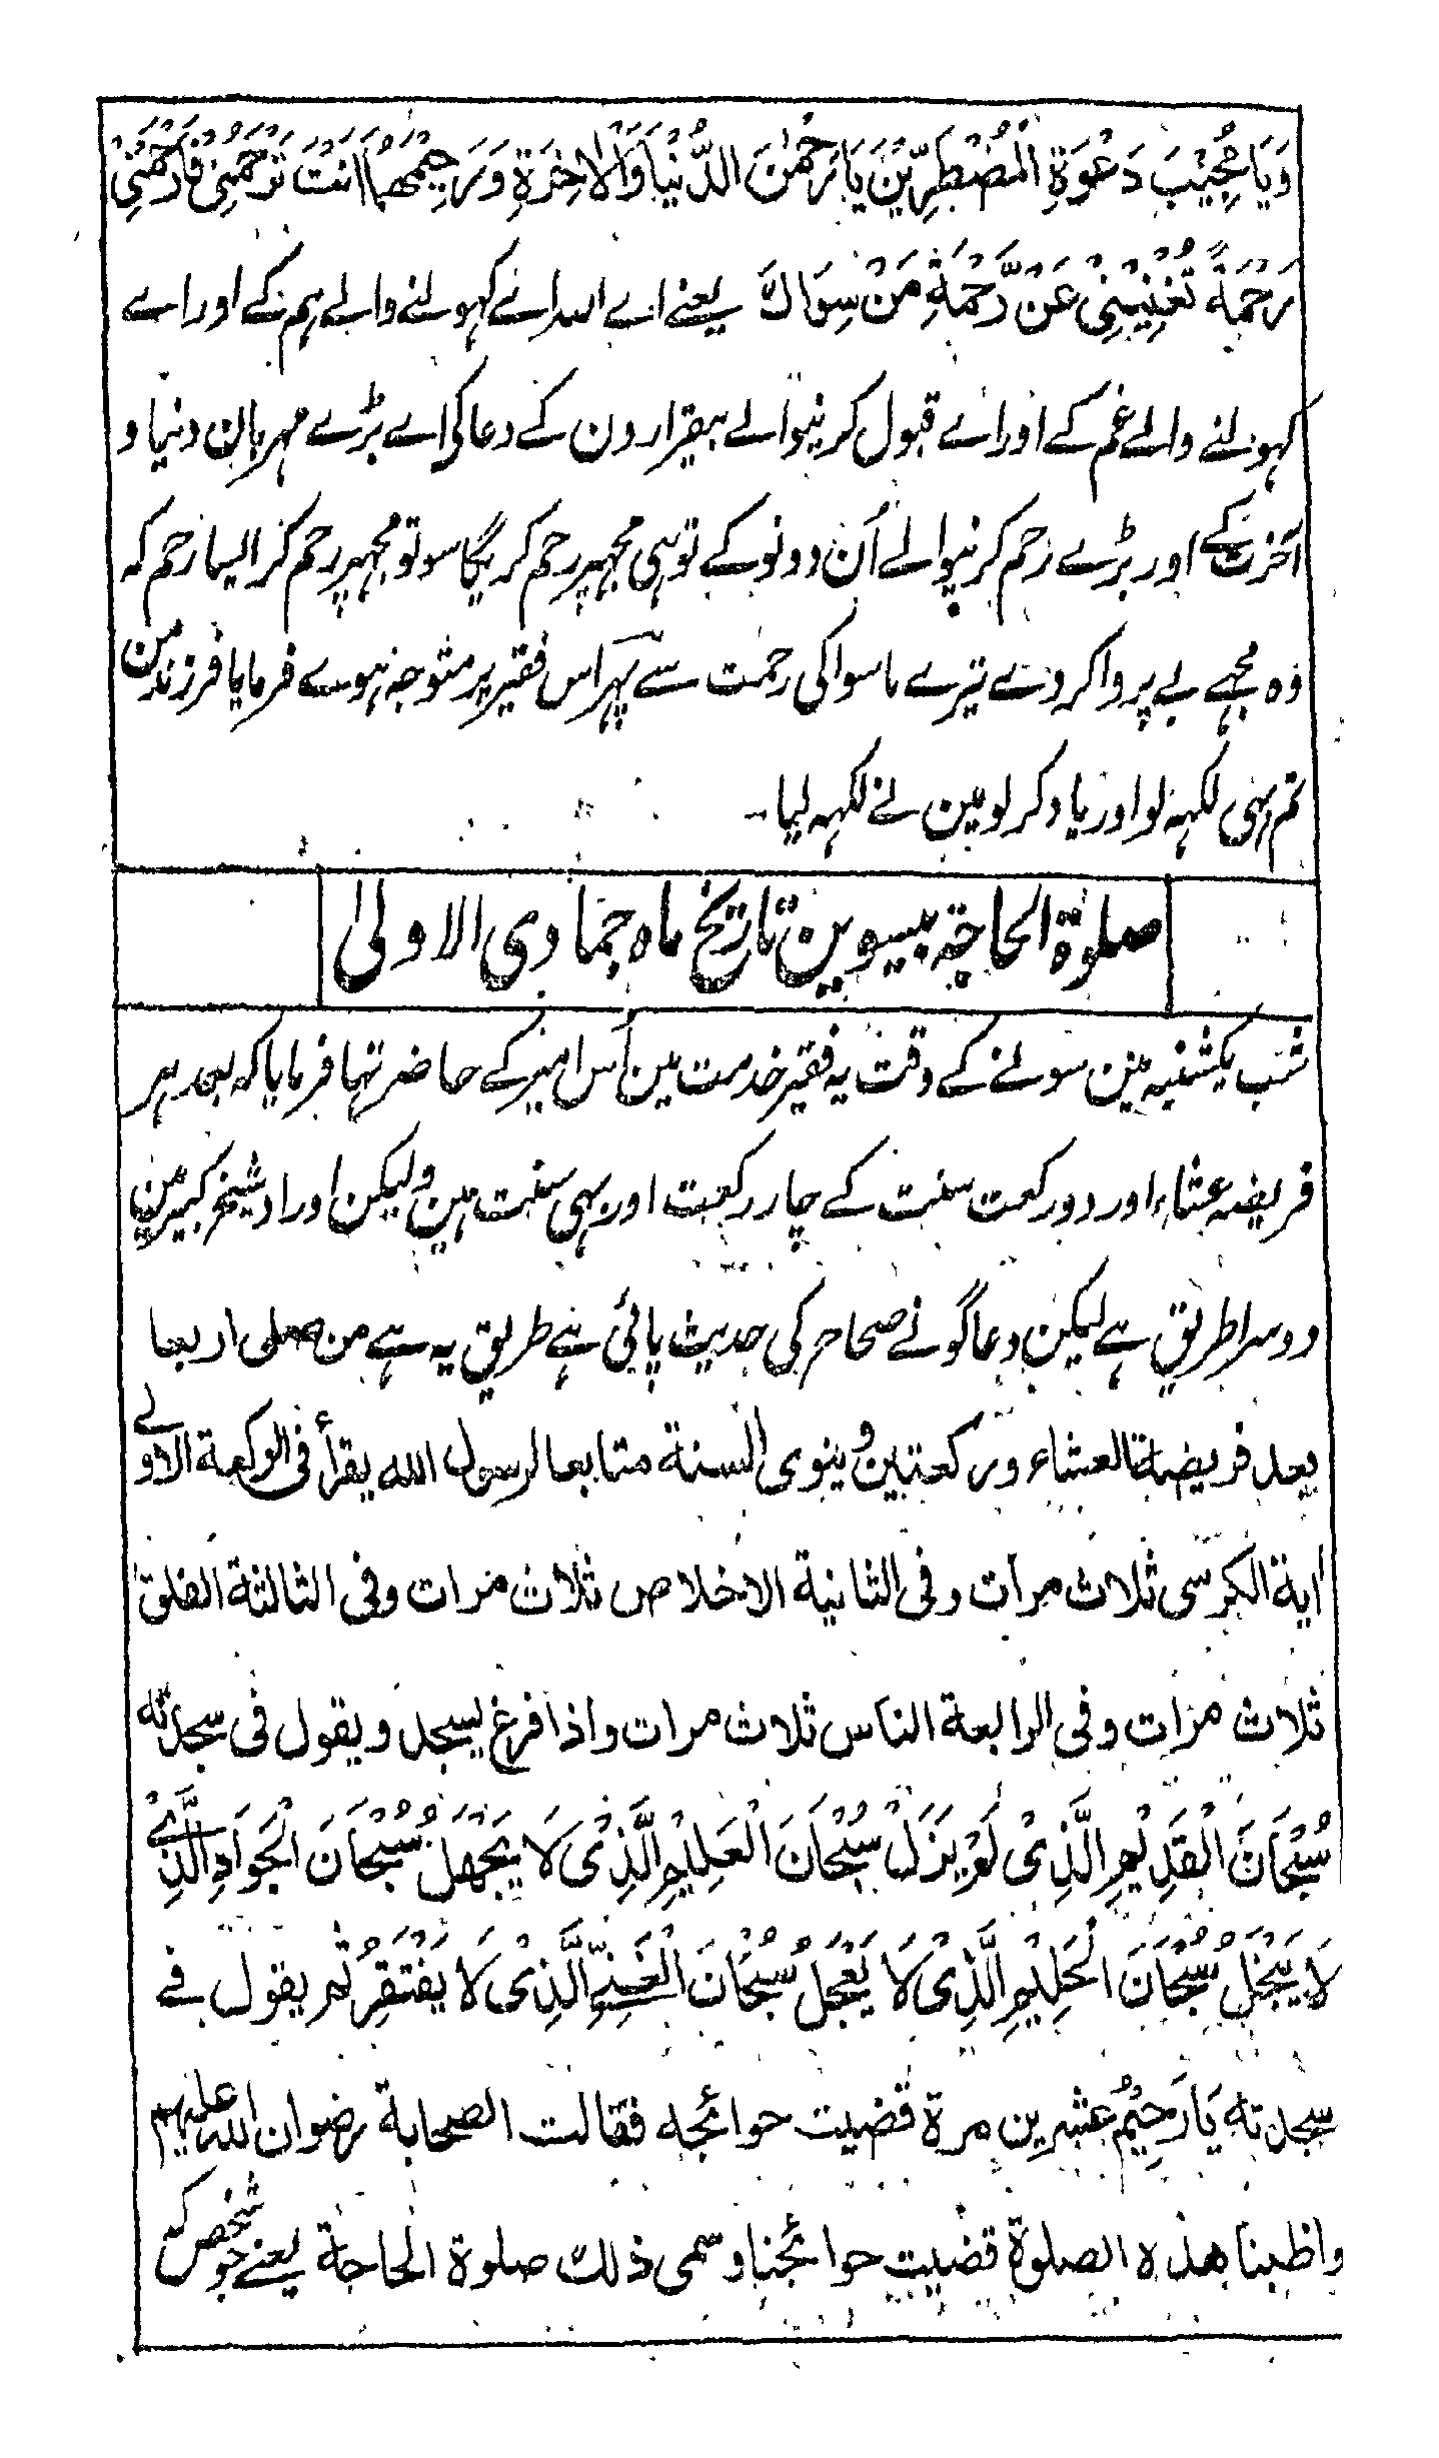 وَيَا مُجِيْبَ دَعْوَةِ الْمُضْطَرِّيْنَ يَا رَحْمٰنَ الدُّنْيَا وَالْاٰخِرَةِ وَرَحِيْمَهُمَا اَنْتَ تَرْحَمُنِيْ فَارْحَمْنِيْ
رَحْمَةً تُغْنِيْنِيْ عَنْ رَّحْمَةِ مَنْ سِوَاكَ یعنے اے اللہ اے کہولنے والے ہم کے اور اے
کہولنے والے غم کے اور اے قبول کرنیوالے بیقرارون کے دعا کی اے بڑے مہربان دنیا و
آخرت کے اور بڑے رحم کرنیوالے اُن دونو کے تو ہی مجہپر رحم کریگا سو تو مجہپر رحم کر ایسا رحم کہ
وہ مجہے بے پروا کر دے تیرے ماسوا کی رحمت سے پہر اس فقیر پر متوجہ ہوے فرمایا فرزند من
تم بہی لکہہ لو اور یاد کر لو مین نے لکہہ لیا۔
صلوة الحاجۃ بیسوین تاریخ ماہ جمادی الاولیٰ
شب یکشنبہ مین سونے کے وقت یہ فقیر خدمت مین اُس امیر کے حاضر تہا فرمایا کہ بعد ہر
فریضہ عشاء اور دو رکعت سنت کے چار رکعت اور بہی سنت ہین ولیکن اوراد شیخ کبیر مین
دوسرا طریق ہے لیکن دعاگو نے صحاح کی حدیث پائی ہے طریق یہ ہے من صلی اربعا
بعد فریضة العشاء ورکعتین وینوی السنة متابعا لرسول الله یقرأ فی الرکعة الاولے
ایة الکرسی ثلاث مرات وفی الثانیة الاخلاص ثلاث مرات وفی الثالثة الفلق
ثلاث مرات وفی الرابعة الناس ثلاث مرات واذا فرغ یسجد ویقول فی سجدته
سُبْحَانَ الْقَدِيْمِ الَّذِىْ لَمْ يَزَلْ سُبْحَانَ الْعَلِيْمِ الَّذِىْ لَا يَجْهَلُ سُبْحَانَ الْجَوَادِ الَّذِىْ
لَا يَبْخَلُ سُبْحَانَ الْحَلِيْمِ الَّذِىْ لَا يَعْجَلُ سُبْحَانَ الْغَنِىِّ الَّذِىْ لَا يَفْتَقِرُ ثم یقول فے
سجدته يَا رَحِيْمُ عشرین مرة قضیت حوائجه فقالت الصحابة رضوان الله علیهم
واظبنا هذه الصلوة قضیت حوائجنا وسمی ذلك صلوة الحاجة یعنے جو شخص کہ